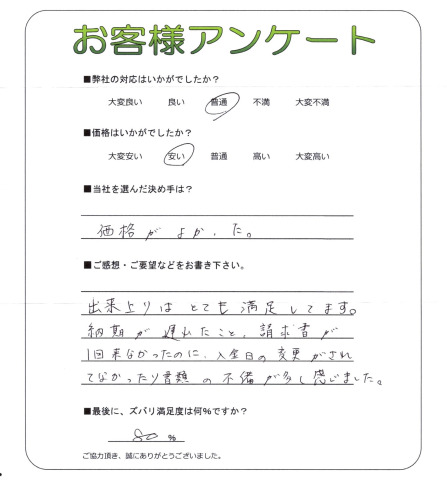 お客様アンケート
■弊社の対応はいかがでしたか?
大変良い 良い 普通 不満 大変不満
■価格はいかがでしたか?
大変安い 安い 普通 高い 大変高い
■当社を選んだ決め手は?
価格がよかった。
■ご感想・ご要望などをお書き下さい。
出来上りはとても満足してます。
納期が遅れたこと、請求書が
1回来なかったのに、入金日の変更がされ
てなかったり書類の不備が多く感じました。
■最後に、ズバリ満足度は何%ですか?
80 %
ご協力頂き、誠にありがとうございました。